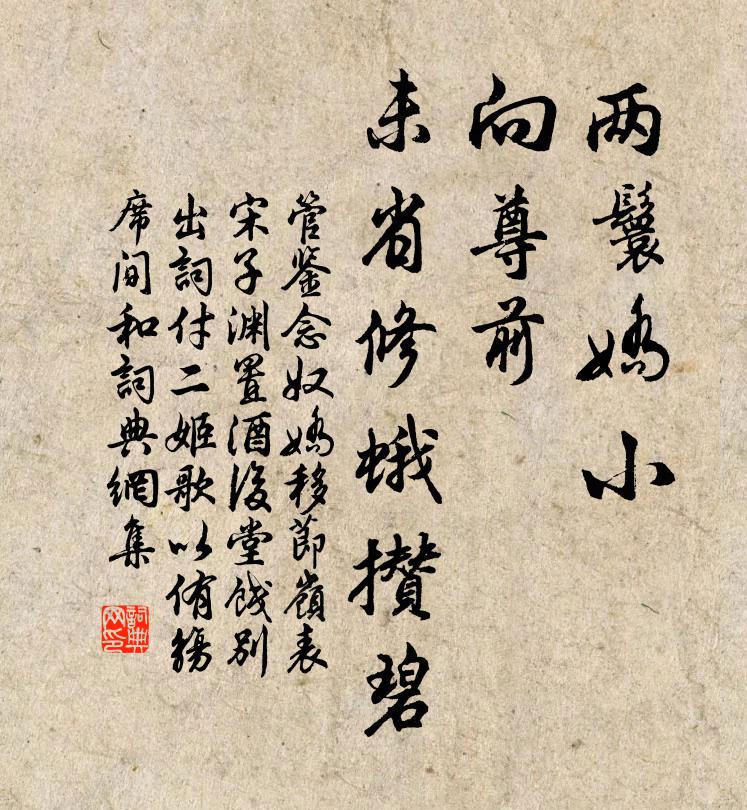 两鬟嬌小
向尊前
未省修蛾攢碧
管鉴念奴嬌移節嶺表
宋子渊置酒後堂餞别
出詞付二姬歌以侑觴
席间和詞典網集
詞典
网印